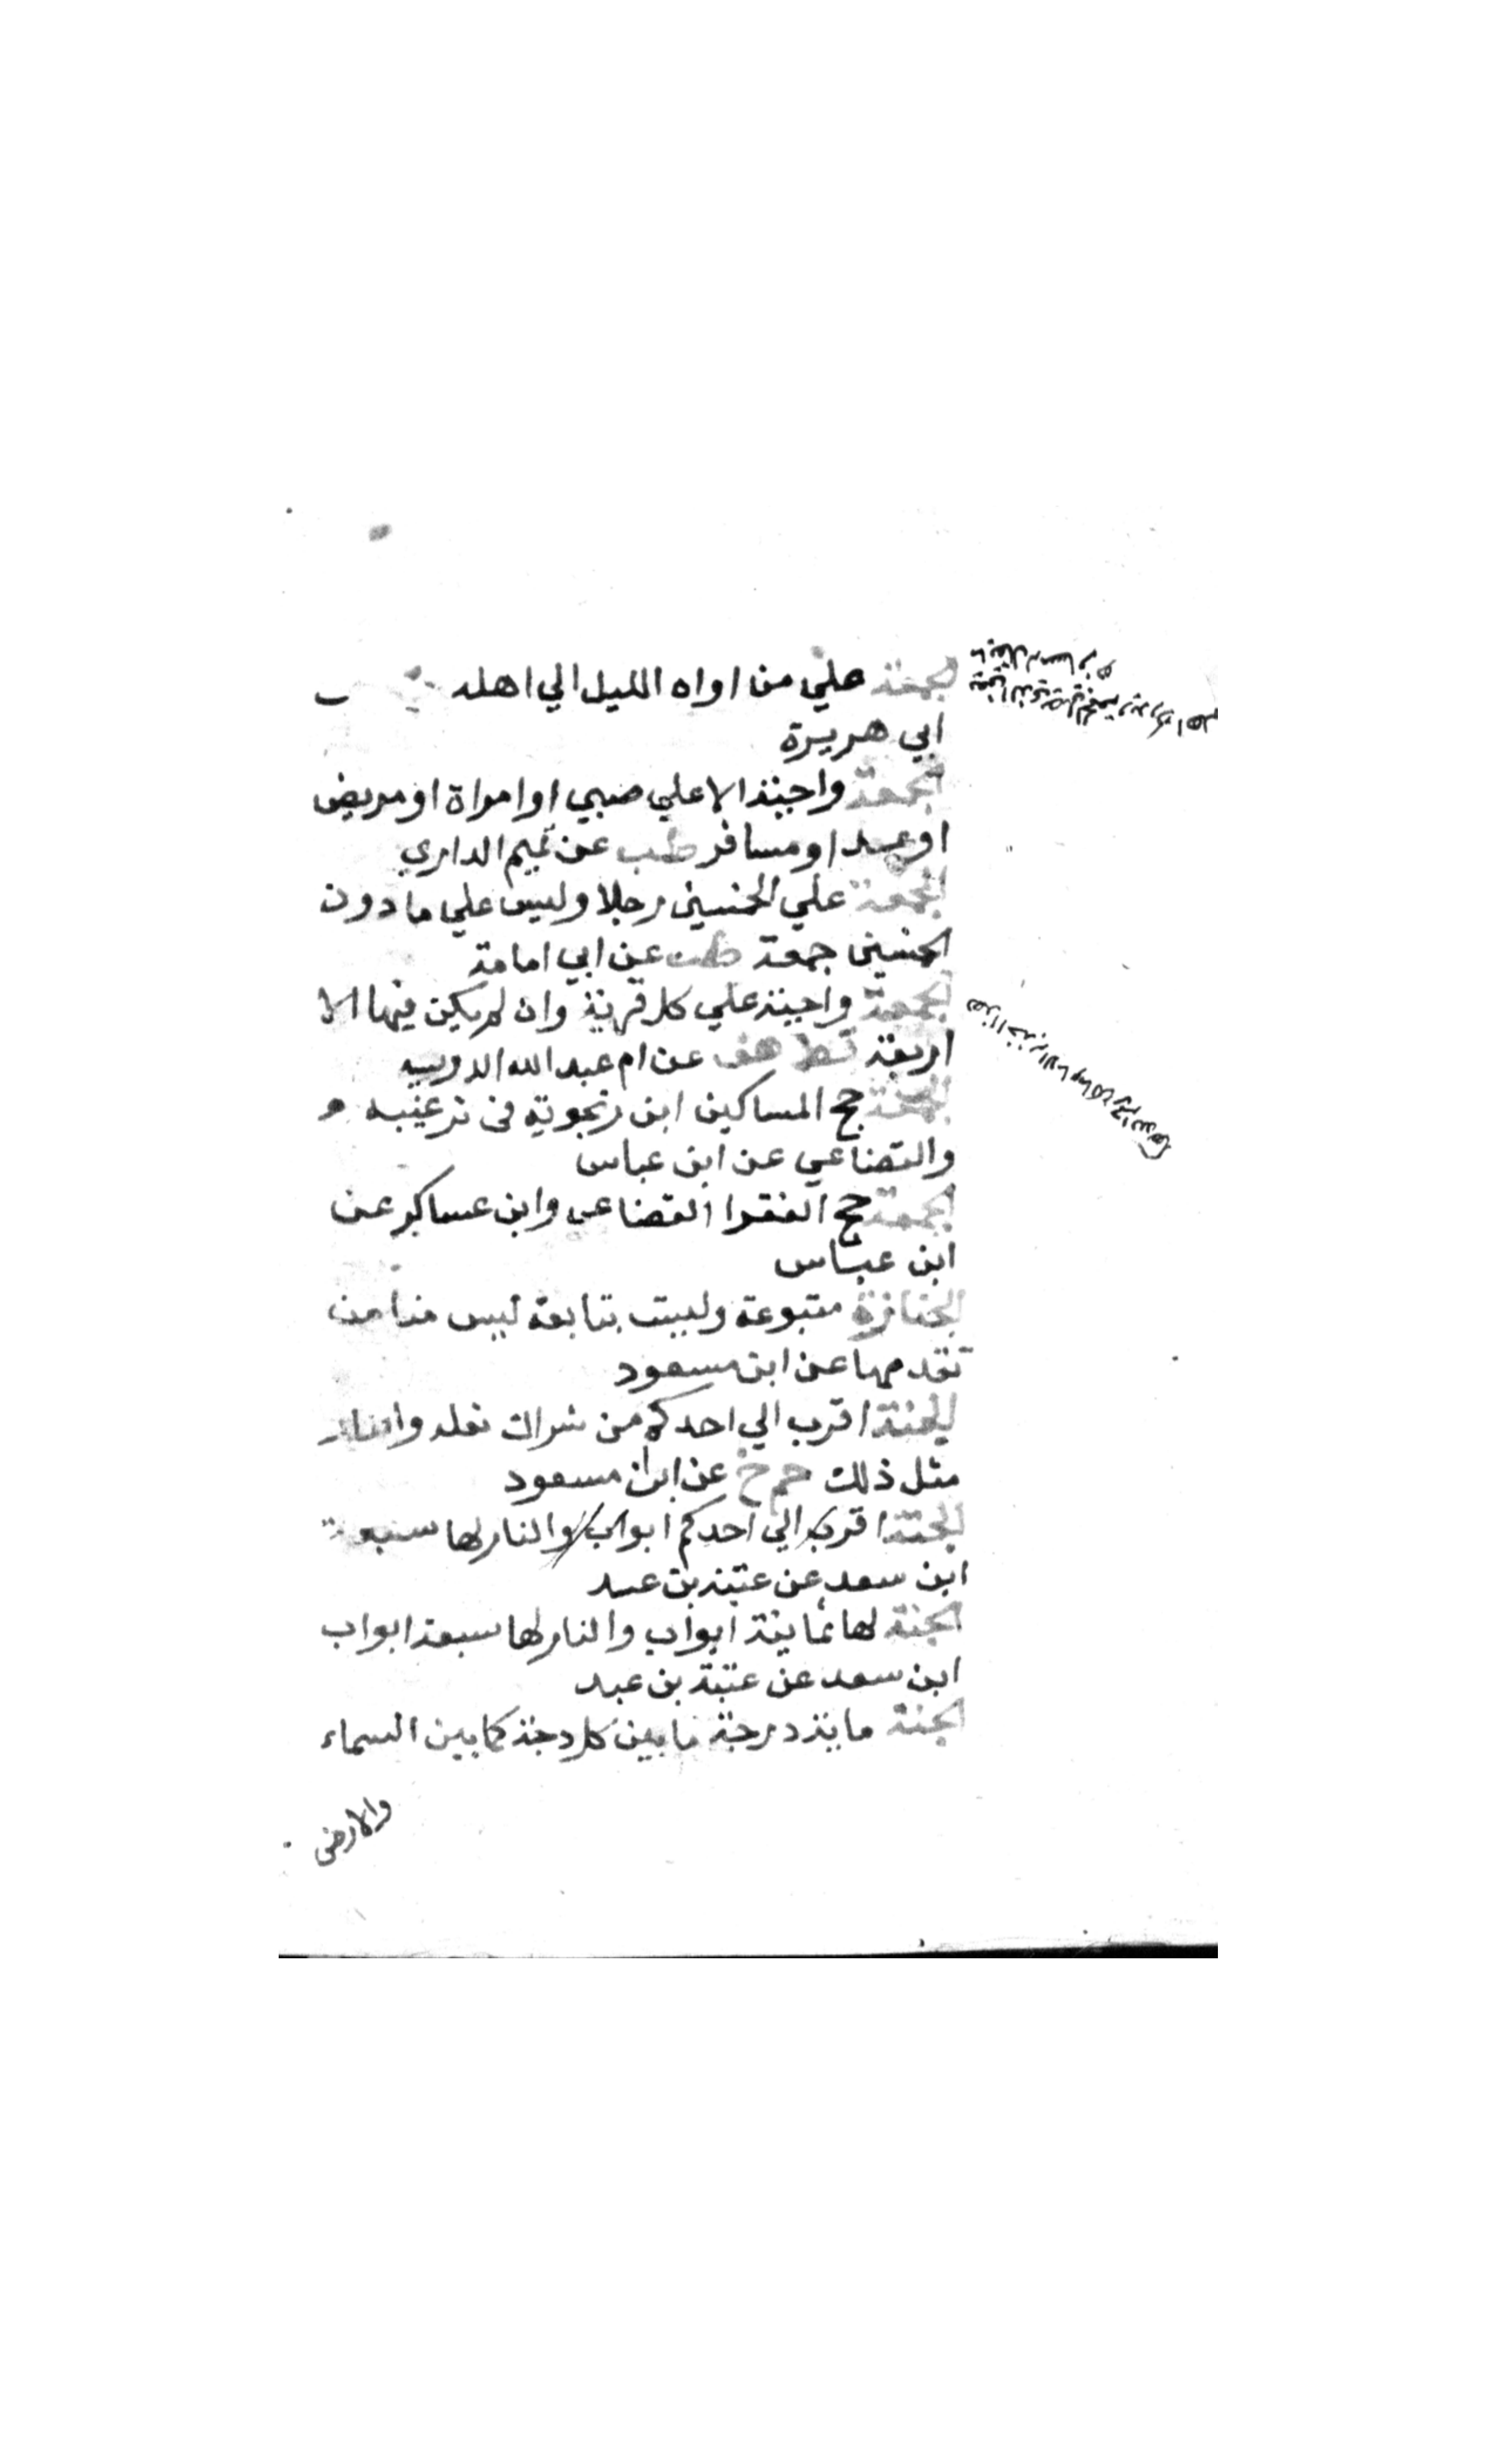 الجمعة علي من اواه الليل الي اهله
ابي هريرة
الجمعة واجبة الا علي صبي او امراة او مريض
او عبد او مسافر طب عن تميم الداري
الجمعة علي الخمسين رجلا وليس علي ما دون
الخمسين جمعة طب عن ابي امامة
الجمعة واجبة علي كل قرية وان لم يكن فيها الا
اربعة قط هق عن ام عبد الله الدوسيه
الجمعة حج المساكين ابن زنجوية في ترغيبه و
والقضاعي عن ابن عباس
الجمعة حج الفقرا القضاعي وابن عساكر عن
ابن عباس
الجنازة متبوعة وليست بتابعة ليس منا من
تقدمها عن ابن مسعود
الجنة اقرب الي احدكم من شراك نعله والنار
مثل ذلك حم خ عن ابن مسعود
الجنة اقرب الي احدكم ابواب والنار لها سبعة
ابن سعد عن عتبة بن عبد
الجنة لها ثمانية ابواب والنار لها سبعة ابواب
ابن سعد عن عتبة بن عبد
الجنة ماية درجة ما بين كل دجة كما بين السماء
والارض